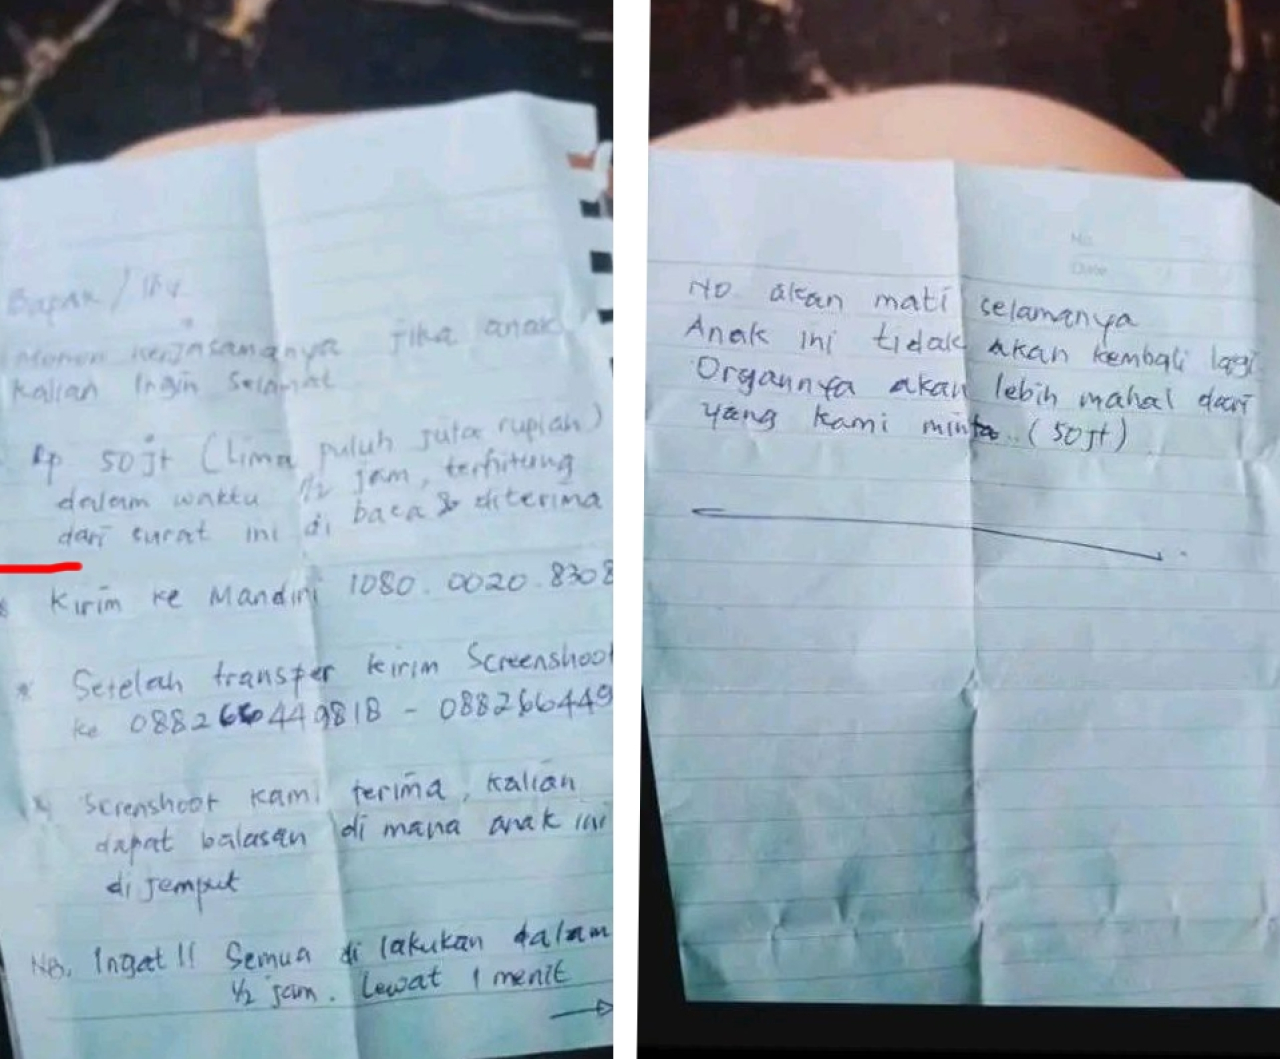 Bapak / Ibu
Mohon kerjasamanya jika anak
kalian Ingin Selamat
Rp 50jt (Lima puluh juta rupiah)
dalam waktu 1/2 jam, terhitung
dari surat ini di baca & diterima
Kirim ke Mandiri 1080.0020.8308
* Setelah transfer kirim Screenshoot
ke 088266449818 - 088266449
* Screnshoot kami terima, kalian
dapat balasan di mana anak ini
di jemput
NB. Ingat!! Semua di lakukan dalam
1/2 jam. Lewat 1 menit
No
Date
No akan mati selamanya
Anak ini tidak akan kembali lagi
Organnya akan lebih mahal dari
yang kami minta.. (50jt)